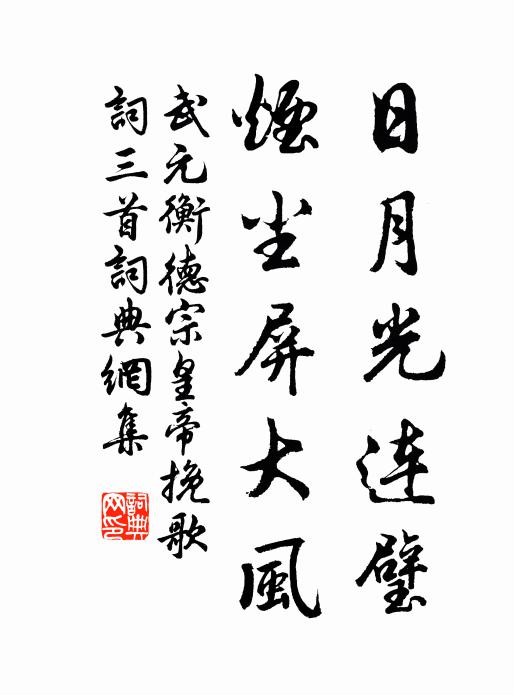 日月光连璧
煙尘屏大風
武元衡德宗皇帝挽歌
詞三首詞典網集
詞典网印